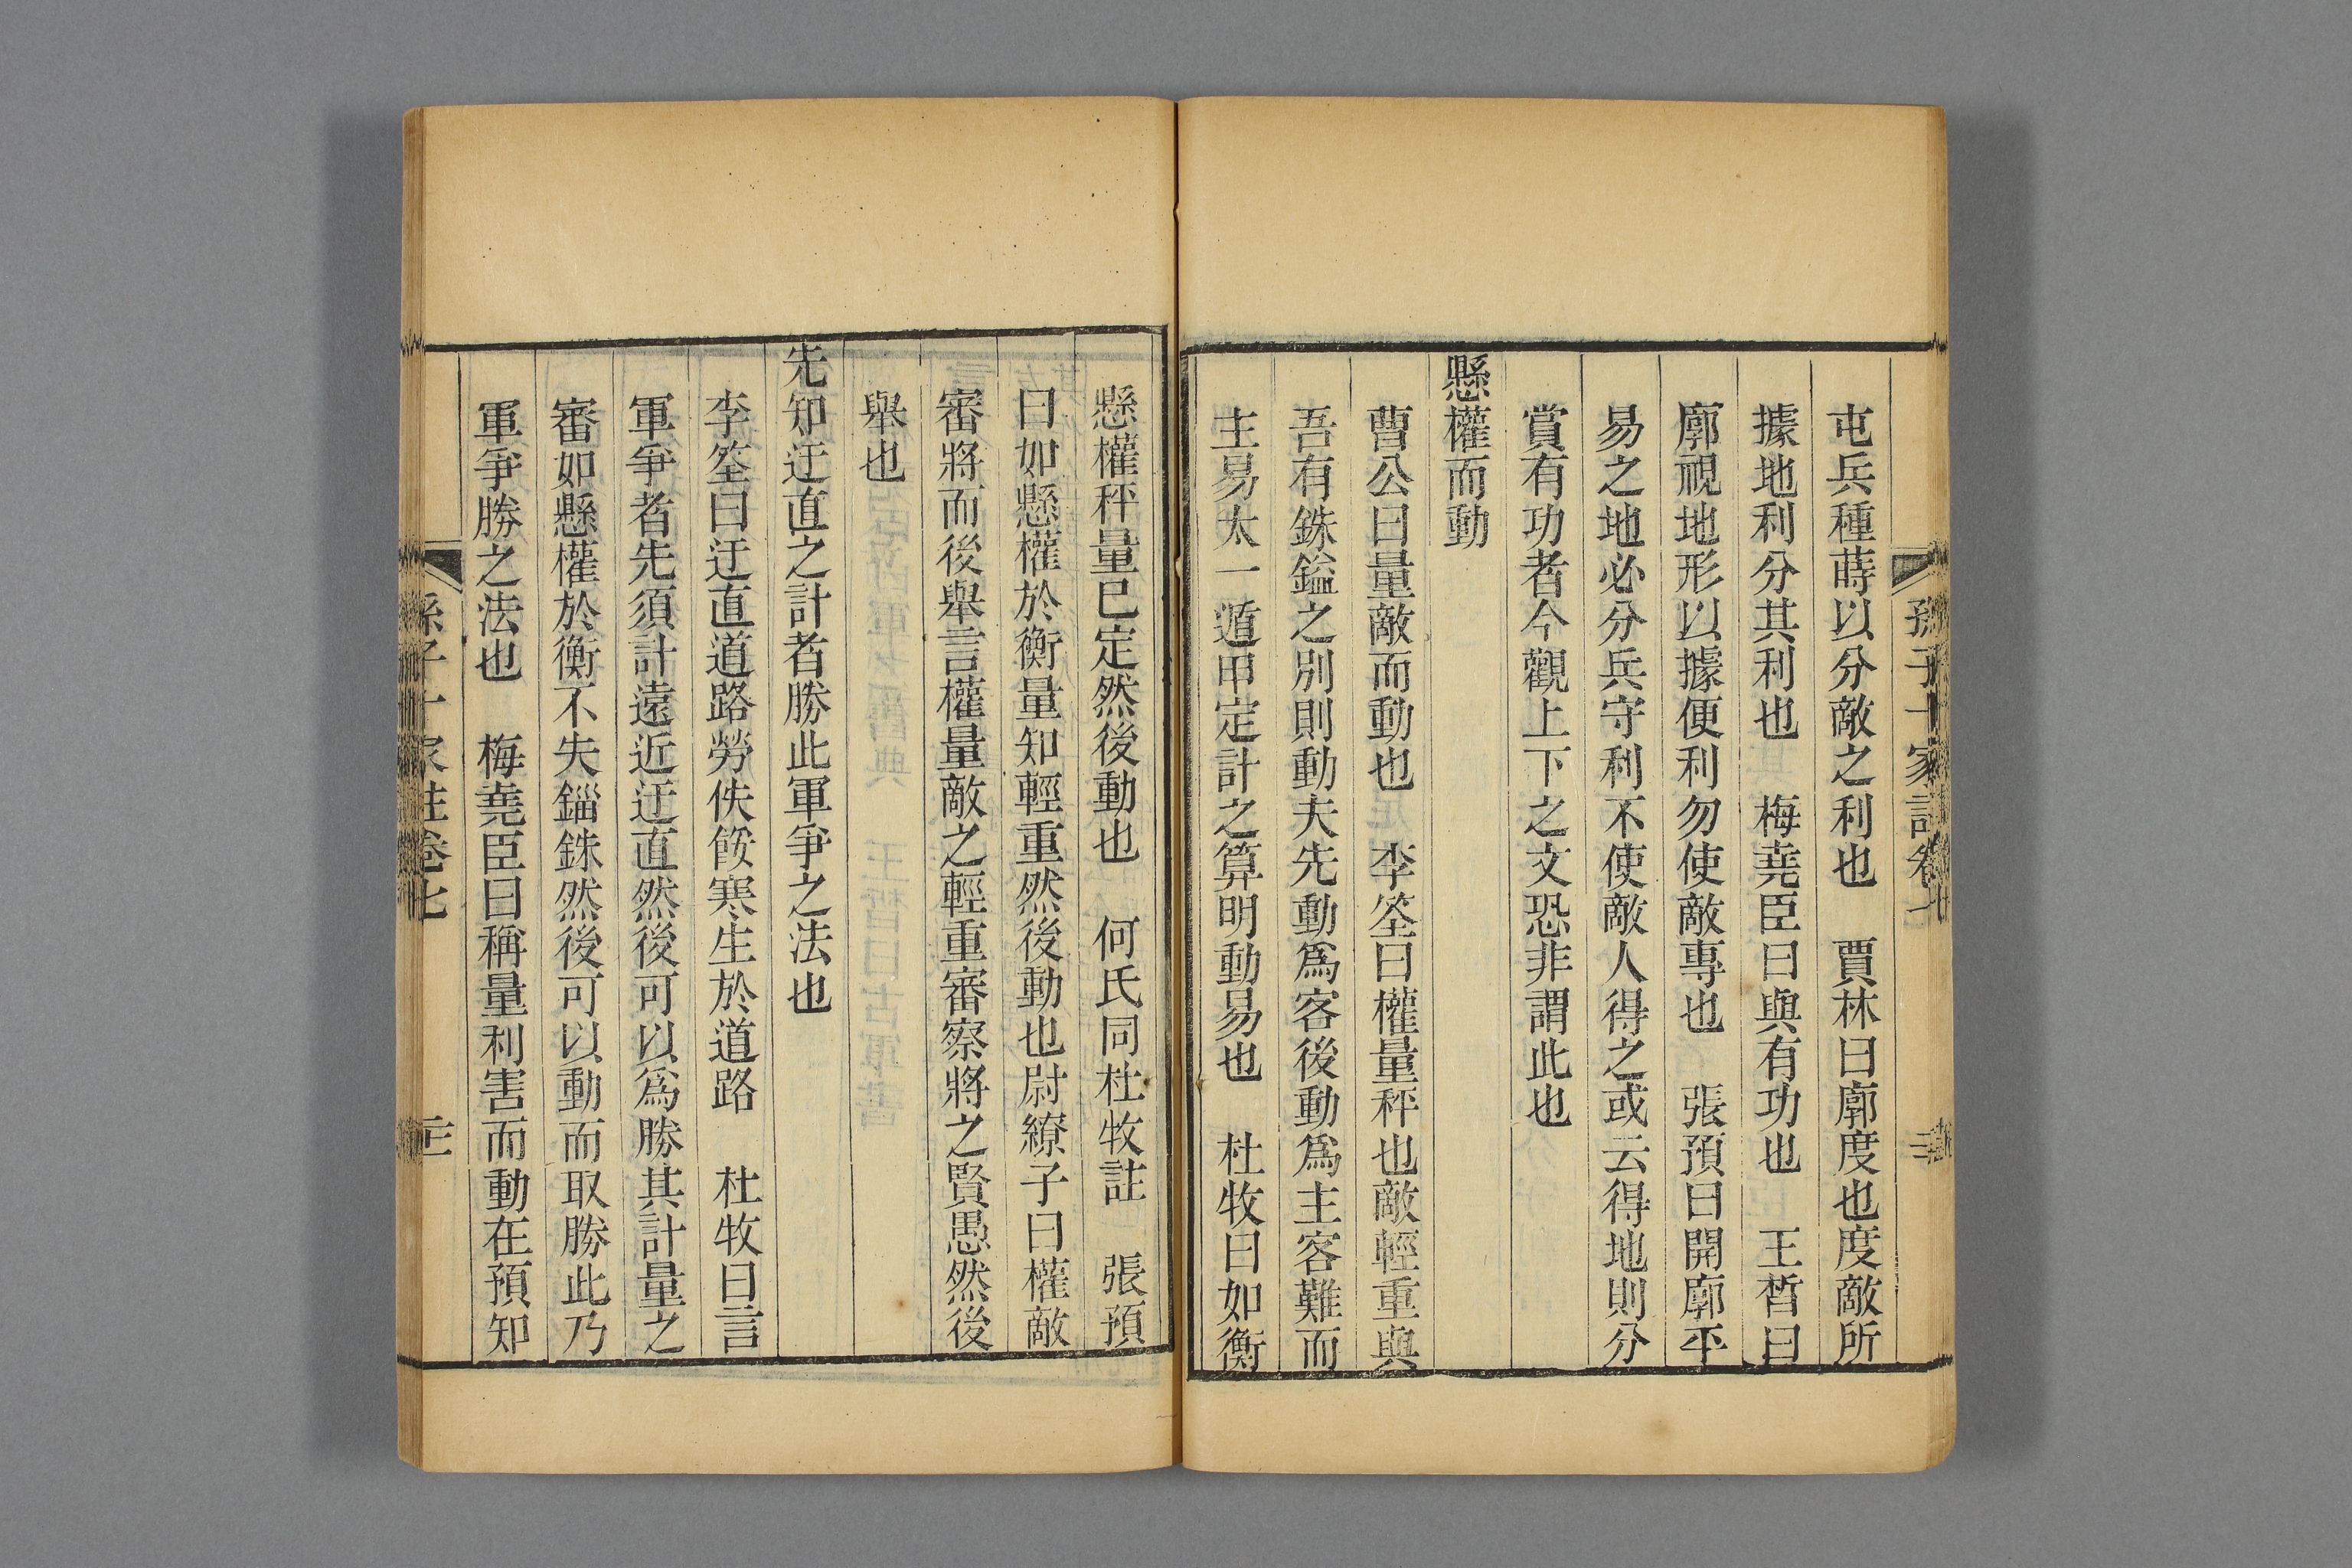 屯兵種蒔以分敵之利也　賈林曰廓度也度敵所
據地利分其利也　梅堯臣曰與有功也　王晳曰
廓視地形以據便利勿使敵專也　張預曰開廓平
易之地必分兵守利不使敵人得之或云得地則分
賞有功者今觀上下之文恐非謂此也
懸權而動
曹公曰量敵而動也　李筌曰權量秤也敵輕重與
吾有銖鎰之別則動夫先動爲客後動爲主客難而
主易太一遁甲定計之算明動易也　杜牧曰如衡
懸權秤量已定然後動也　何氏同杜牧註　張預
曰如懸權於衡量知輕重然後動也尉繚子曰權敵
審將而後舉言權量敵之輕重審察將之賢愚然後
舉也
先知迂直之計者勝此軍爭之法也
李筌曰迂直道路勞佚餒寒生於道路　杜牧曰言
軍爭者先須計遠近迂直然後可以爲勝其計量之
審如懸權於衡不失錙銖然後可以動而取勝此乃
軍爭勝之法也　梅堯臣曰稱量利害而動在預知
孫子十家註卷七